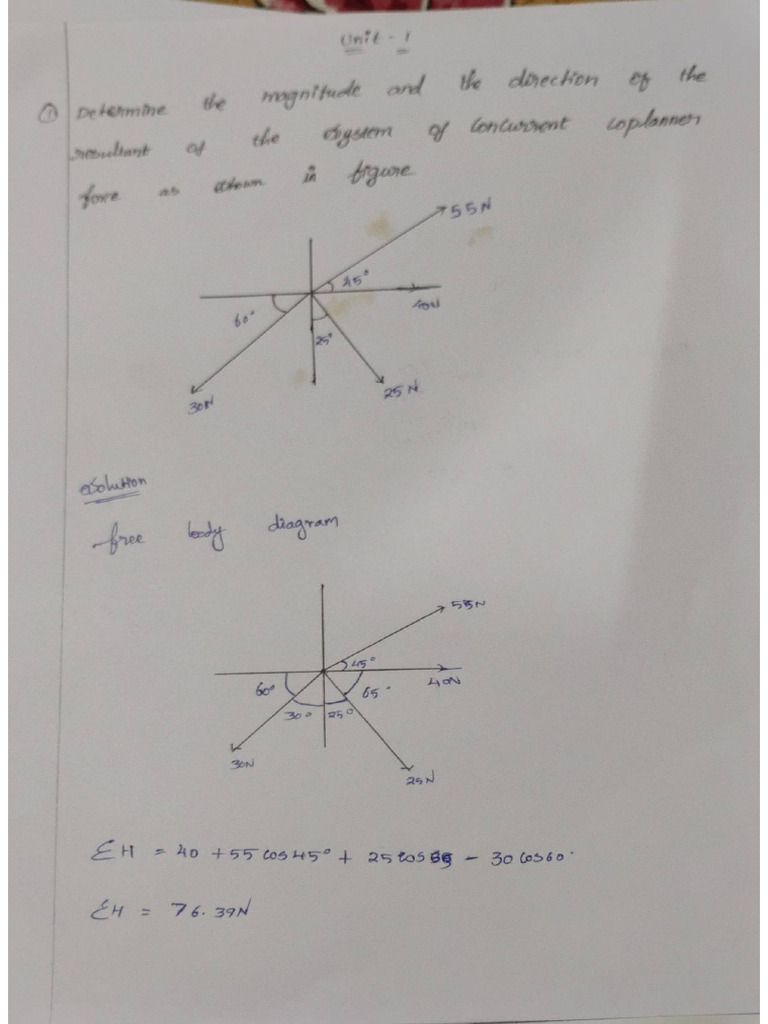 Unit - 1
① Determine the magnitude and the direction of the
resultant of the System of Concurrent coplanner
force as shown in figure.
55N
45°
40N
60°
25°
30N
25N
Solution
free body diagram
55N
45°
40N
60°
65°
30°
25°
30N
25N
ΣH = 40 + 55 cos45° + 25 cos65 - 30 cos60°
ΣH = 76.39N